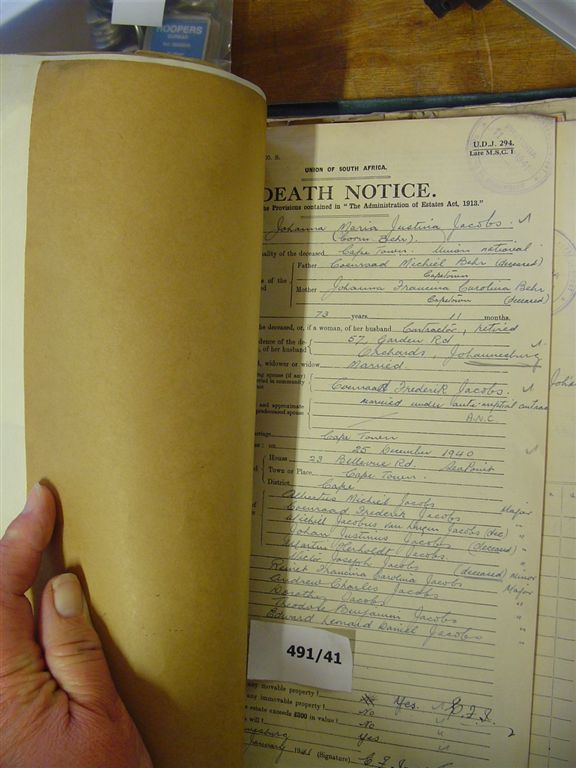 HOOPERS
U.D.J. 294.
Late M.S.C. 1
UNION OF SOUTH AFRICA.
DEATH NOTICE.
he Provisions contained in "The Administration of Estates Act, 1913."
Johanna Maria Justina Jacobs.
(born Behr).
ality of the deceased Cape Town. Union national
Father Coenraad Michiel Behr (deceased)
Capetown
s of the
Mother Johanna Francina Carolina Behr
Capetown (deceased)
73 years 11 months.
he deceased, or, if a woman, of her husband Contractor, retired
dence of the de- 57, Garden Rd
, of her husband Orchards, Johannesburg
, widower or widow Married.
ng spouse (if any)
Coenraad Frederik Jacobs.
and approximate married under ante-nuptial contract
predeceased spouse A.N.C.
Cape Town
25 December 1940
House 23 Bellevue Rd. Sea Point
Town or Place Cape Town.
District Cape
Albertus Michiel Jacobs Major
Coenraad Frederik Jacobs "
Michiel Jacobus van Jacobs (dec) "
Johan Justinus Jacobs (deceased) "
Martin Oberholdt Jacobs "
Victor Joseph Jacobs (deceased) minor
Francina Carolina Jacobs Major
Andrew Charles Jacobs "
Dorothy Jacobs "
Theodore Benjamin Jacobs "
Edward Leonard Daniel Jacobs "
491/41
any movable property? Yes. C.F.J.
any immovable property? No
e estate exceeds £300 in value? No
will? Yes
January 1941 (Signature)